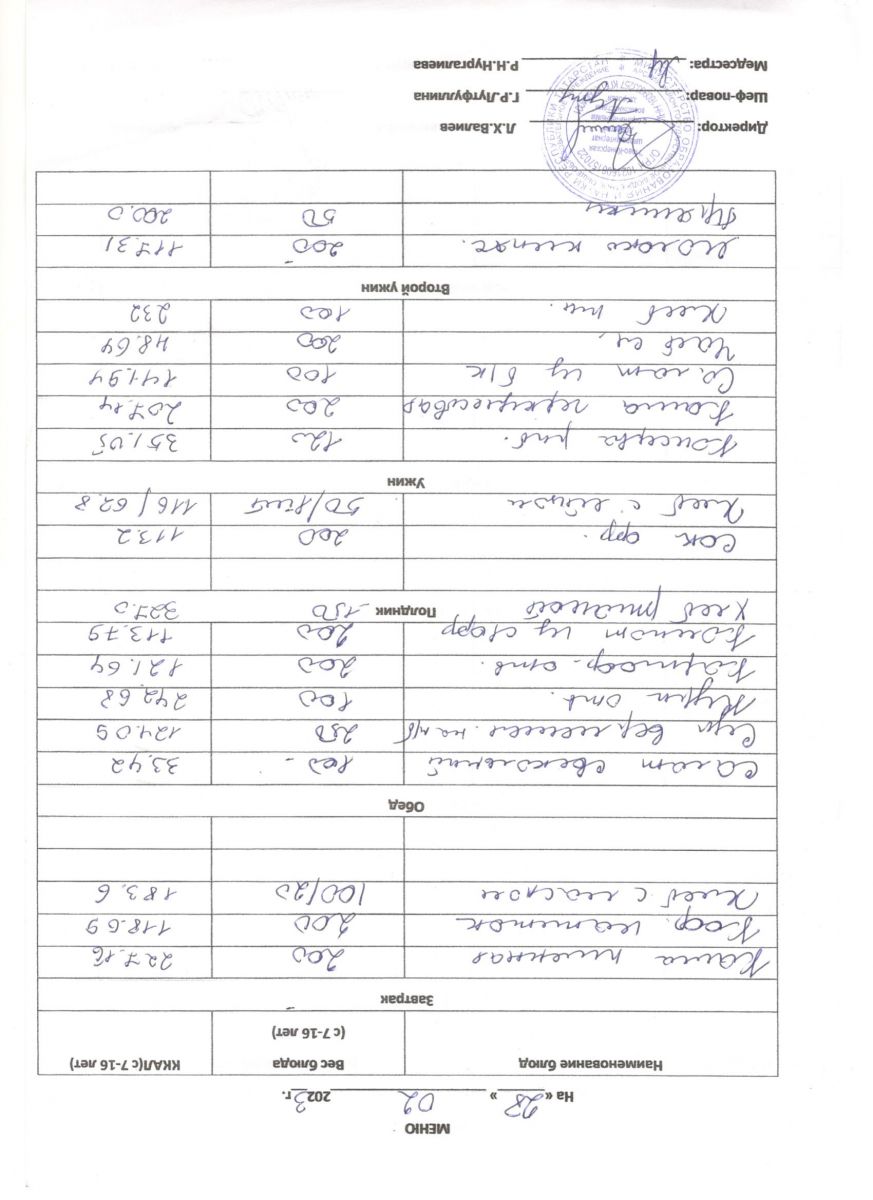 МЕНЮ
На « 28 » 02 2023 г.
Наименование блюд Вес блюда (с 7-16 лет) ККАЛ(с 7-16 лет)
Завтрак
Каша пшенная 200 227.16
Коф. напиток 200 118.69
Хлеб с маслом 100/20 183.6
Обед
Салат свекольный 100 - 33.42
Суп вермишел. на м/б 250 124.09
Куры отв. 100 242.68
Картоф. отв. 200 121.64
Компот из с/фр 200 113.79
Хлеб ржаной 150 327.0
Полдник
Сок фр. 200 113.2
Хлеб с 50/ 116/62.8
Ужин
Консерва рыб. 120 351.05
Каша геркулесовая 200 207.14
Салат из б/к 100 141.94
Чай сл, 200 48.64
Хлеб пш. 100 232
Второй ужин
Молоко кипяч. 200 117.31
Пряники 50 200.0
Директор: Л.Х.Валиев
Шеф-повар: Г.Р.Лутфуллина
Медсестра: Р.Н.Нургалиева